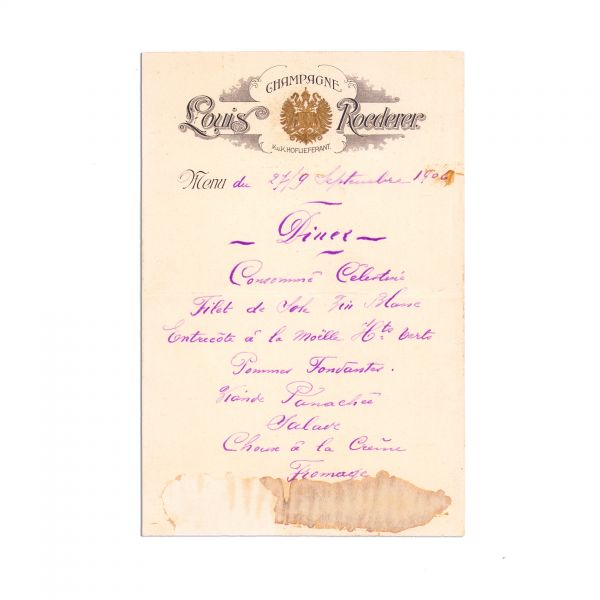 CHAMPAGNE
Louis Roederer
K.u.K. HOFLIEFERANT.
Menu du 27/9 Septembre 190
Diner
Consommé Célestine
Filet de Sole Vin Blanc
Entrecôte à la Moëlle Hts Verts
Pommes Fondantes.
Viande Panachée
Salade
Choux à la Crême
Fromage